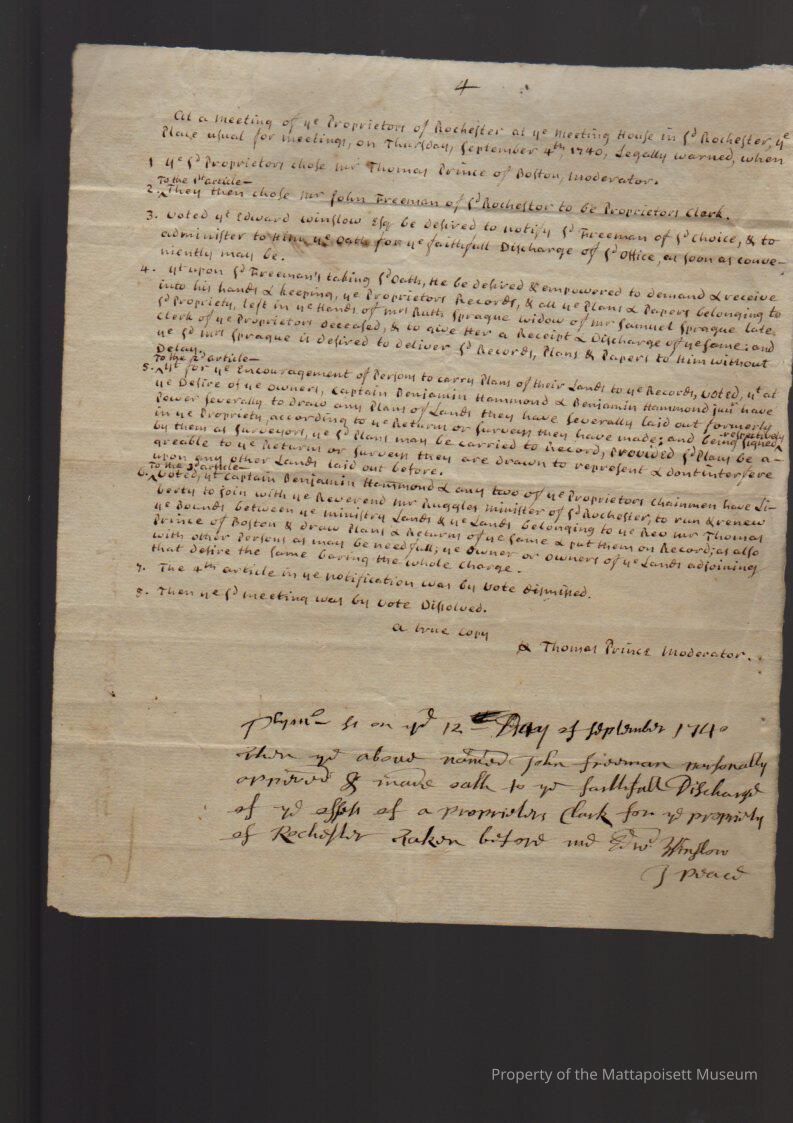 4
At a meeting of ye Proprietors of Rochester at ye meeting House in sd Rochester, ye
Place usual for meetings, on Thursday, September 4th 1740, Legally warned, when
1 ye sd Proprietors chose mr Thomas Prince of Boston, Moderator.
To the 1st article—
2. They then chose mr John Freeman of sd Rochester to be Proprietors Clerk.
3. Voted yt Edward Winslow Esqr be desired to notify sd Freeman of sd Choice, & to
administer to Him ye Oath for ye faithfull Discharge of sd Office, as soon as conve-
niently may be.
4. yt upon sd Freeman's taking sd Oath, He be desired & empowered to demand & receive
into his hands & keeping, ye Proprietors Records, & all ye Plans & Papers belonging to
sd Propriety, left in ye Hands of mrs Ruth Sprague widow of mr Samuel Sprague late
Clerk of ye Proprietors Deceased, & to give Her a Receipt & Discharge of ye same: and
ye sd mrs Sprague is desired to deliver sd Records, Plans & Papers to Him without
Delay.
To the 2d article—
5. yt for ye Encouragement of Persons to carry Plans of their Lands to ye Records, Voted, yt at
ye Desire of ye owners, Captain Benjamin Hammond & Benjamin Hammond junr have
Power severally to Draw any Plans of Lands they have severally laid out formerly
in ye Propriety, according to ye Returns or Surveys they have made; and being signed respectively
by them as Surveyors, ye sd Plans may be carried to Record, provided sd Plans be a-
greable to ye Returns or Surveys they are drawn to represent & dont interfere
upon any other Lands laid out before.
To the 3d article—
6. Voted, yt Captain Benjamin Hammond & any two of ye Proprietors Chainmen have Li-
berty to join with ye Reverend mr Ruggles minister of sd Rochester, to run & renew
ye Bounds between ye ministry Lands & ye Lands belonging to ye Rev mr Thomas
Prince of Boston & draw Plans & Returns of ye same & put them on Record; as also
with other Persons as may be needfull; ye Owner or Owners of ye Lands adjoining
that desire the same baring the whole Charge.
7. The 4th article in ye notification was by Vote dismissed.
8. Then ye sd meeting was by Vote Dissolved.
a true copy
Thomas Prince Moderator.
Plymo ss on ye 12th Day of september 1740
then ye above named John freeman personally
appered & made oath to ye faithfull Discharge
of ye office of a proprietors Clark for ye propriety
of Rochester taken before me Edw Winslow
J peace
Property of the Mattapoisett Museum